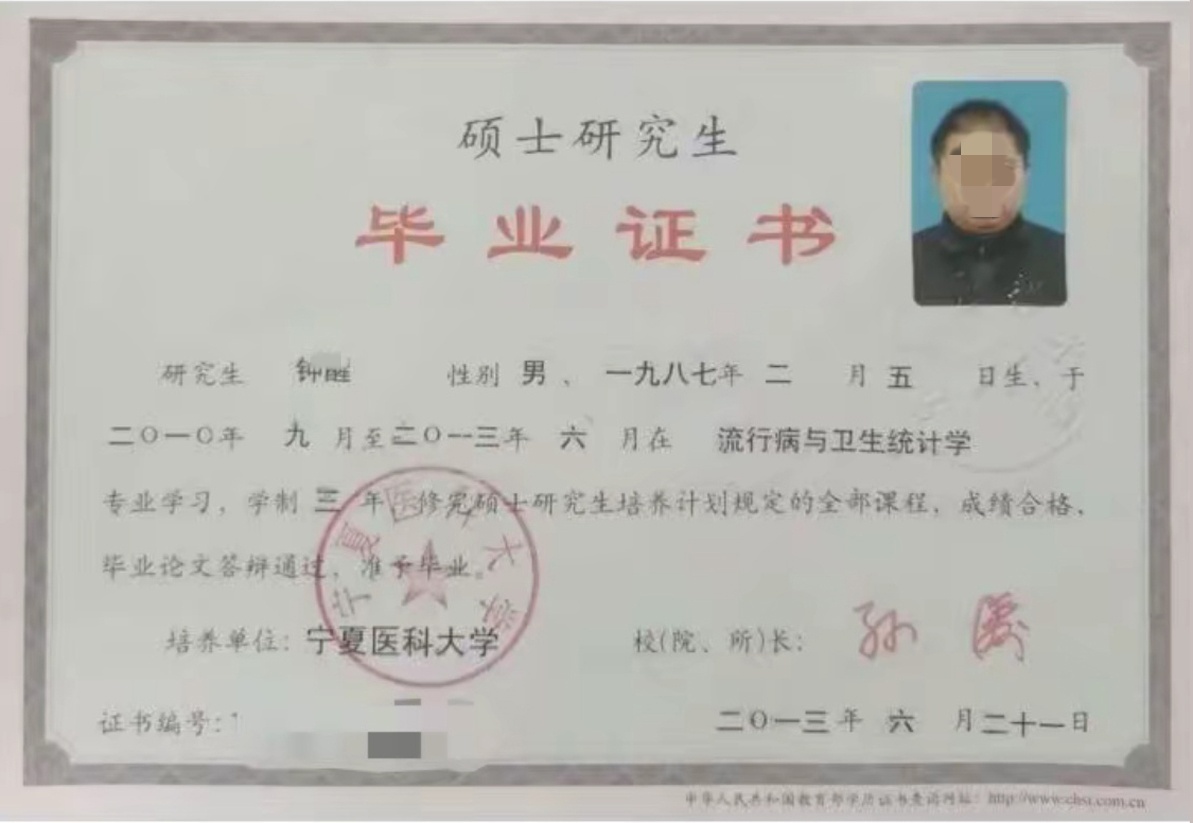 硕士研究生
毕业证书
研究生 钟 性别 男、一九八七年 二 月 五 日生、于
二〇一〇年 九 月至二〇一三年 六 月在 流行病与卫生统计学
专业学习，学制 三 年，修完硕士研究生培养计划规定的全部课程，成绩合格，
毕业论文答辩通过，准予毕业。
宁夏医科大学
培养单位：宁夏医科大学 校(院、所)长：孙涛
证书编号：
二〇一三年 六 月二十一日
中华人民共和国教育部学历证书查询网址：http://www.chsi.com.cn